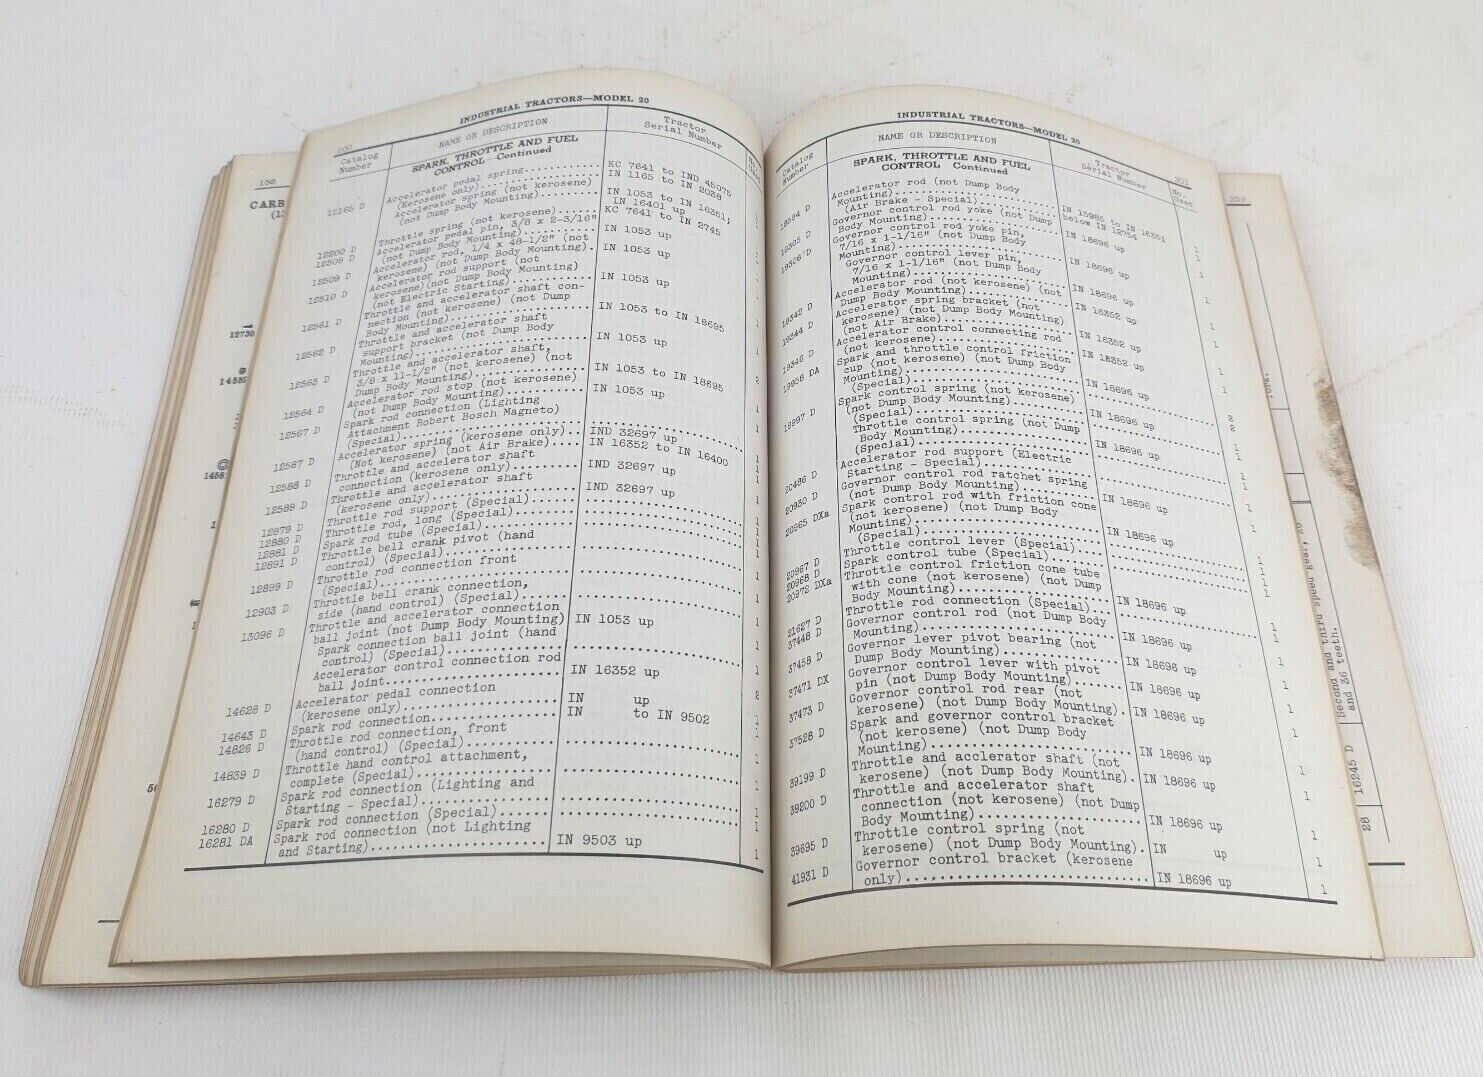 200
INDUSTRIAL TRACTORS—MODEL 20
Catalog Number
NAME OR DESCRIPTION
Tractor Serial Number
SPARK, THROTTLE AND FUEL
CONTROL—Continued
12165 D Accelerator pedal spring KC 7641 to IND 45075
(Kerosene only) IN 1165 to IN 2038
Accelerator spring (not kerosene)
(not Dump Body Mounting) IN 1053 to IN 16351;
IN 16401 up
12200 D Throttle spring (not kerosene) KC 7641 to IN 2745
12508 D Accelerator pedal pin, 3/8 x 2-3/16"
(not Dump Body Mounting) IN 1053 up
12509 D Accelerator rod, 1/4 x 48-1/2" (not
kerosene) (not Dump Body Mounting). IN 1053 up
12510 D Accelerator rod support (not
kerosene)(not Dump Body Mounting)
(not Electric Starting) IN 1053 up
12561 D Throttle and accelerator shaft con-
nection (not kerosene) (not Dump
Body Mounting) IN 1053 to IN 18695
12562 D Throttle and accelerator shaft
support bracket (not Dump Body
Mounting) IN 1053 up
12563 D Throttle and accelerator shaft,
3/8 x 11-1/2" (not kerosene) (not
Dump Body Mounting) IN 1053 to IN 18695 2
12564 D Accelerator rod stop (not kerosene)
(not Dump Body Mounting) IN 1053 up 1
12567 D Spark rod connection (Lighting
Attachment Robert Bosch Magneto)
(Special) 1
12587 D Accelerator spring (kerosene only) IND 32697 up 1
(Not kerosene) (not Air Brake) IN 16352 to IN 16400 1
12588 D Throttle and accelerator shaft
connection (kerosene only) IND 32697 up 1
12589 D Throttle and accelerator shaft
(kerosene only) IND 32697 up 1
12879 D Throttle rod support (Special) 1
12880 D Throttle rod, long (Special) 1
12881 D Spark rod tube (Special) 1
12891 D Throttle bell crank pivot (hand
control) (Special) 1
12899 D Throttle rod connection front
(Special) 1
12903 D Throttle bell crank connection,
side (hand control) (Special) 1
13096 D Throttle and accelerator connection
ball joint (not Dump Body Mounting) IN 1053 up 1
Spark connection ball joint (hand
control) (Special) 1
Accelerator control connection rod
ball joint IN 16352 up 2
14628 D Accelerator pedal connection
(kerosene only) IN up 1
14643 D Spark rod connection IN to IN 9502 1
14826 D Throttle rod connection, front
(hand control) (Special) 1
14839 D Throttle hand control attachment,
complete (Special) 1
16279 D Spark rod connection (Lighting and
Starting - Special) 1
16280 D Spark rod connection (Special) 1
16281 DA Spark rod connection (not Lighting
and Starting) IN 9503 up 1
INDUSTRIAL TRACTORS—MODEL 20
201
Catalog Number
NAME OR DESCRIPTION
Tractor Serial Number
No. Used
SPARK, THROTTLE AND FUEL
CONTROL Continued
18594 D Accelerator rod (not Dump Body
Mounting) IN 15985 to IN 16351 1
(Air Brake - Special) below IN 12754 1
19305 D Governor control rod yoke (not Dump
Body Mounting) IN 18696 up 1
19306 D Governor control rod yoke pin,
7/16 x 1-1/16" (not Dump Body
Mounting) IN 18696 up 1
Governor control lever pin,
7/16 x 1-1/16" (not Dump Body
Mounting) IN 18696 up
19342 D Accelerator rod (not kerosene) (not
Dump Body Mounting) IN 16352 up 1
19344 D Accelerator spring bracket (not
kerosene) (not Dump Body Mounting)
(not Air Brake) IN 16352 up 1
19346 D Accelerator control connecting rod
(not kerosene) IN 16352 up 1
19958 DA Spark and throttle control friction
cup (not kerosene) (not Dump Body
Mounting) IN 18696 up 2
(Special) 2
19997 D Spark control spring (not kerosene)
(not Dump Body Mounting) IN 18696 up 1
(Special) 1
Throttle control spring (not Dump
Body Mounting) IN 18696 up 1
(Special) 1
20486 D Accelerator rod support (Electric
Starting - Special) 1
20930 D Governor control rod ratchet spring
(not Dump Body Mounting) IN 18696 up 1
20965 DXa Spark control rod with friction cone
(not kerosene) (not Dump Body
Mounting) IN 18696 up 1
(Special) 1
20967 D Throttle control lever (Special) 1
20968 D Spark control tube (Special) 1
20972 DXa Throttle control friction cone tube
with cone (not kerosene) (not Dump
Body Mounting) IN 18696 up 1
21627 D Throttle rod connection (Special) 1
37448 D Governor control rod (not Dump Body
Mounting) IN 18696 up 1
37458 D Governor lever pivot bearing (not
Dump Body Mounting) IN 18696 up 1
37471 DX Governor control lever with pivot
pin (not Dump Body Mounting) IN 18696 up 1
37473 D Governor control rod rear (not
kerosene) (not Dump Body Mounting). IN 18696 up 1
37528 D Spark and governor control bracket
(not kerosene) (not Dump Body
Mounting) IN 18696 up 1
39199 D Throttle and acclerator shaft (not
kerosene) (not Dump Body Mounting). IN 18696 up 1
39200 D Throttle and accelerator shaft
connection (not kerosene) (not Dump
Body Mounting) IN 18696 up 1
39695 D Throttle control spring (not
kerosene) (not Dump Body Mounting). IN up 1
41931 D Governor control bracket (kerosene
only) IN 18696 up 1
158
CARB
(13
12730
1455
1458
259
Second and third speed gear, 28
and 36 teeth.
16245 D
28